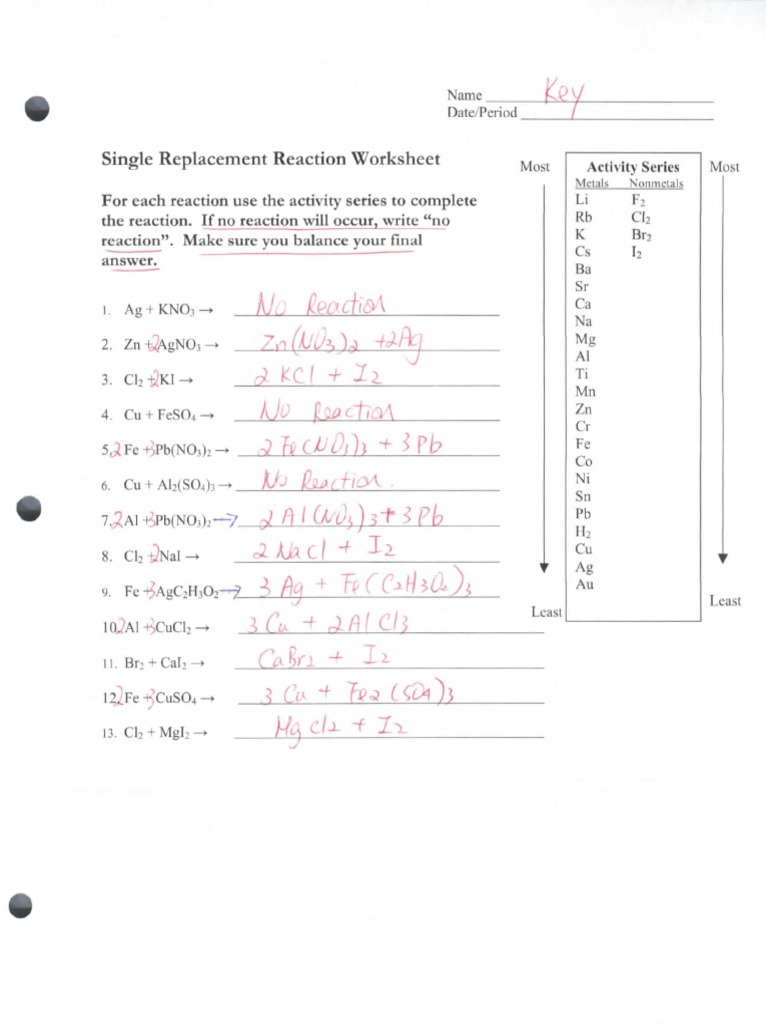 Name Key
Date/Period
Single Replacement Reaction Worksheet
For each reaction use the activity series to complete
the reaction. If no reaction will occur, write “no
reaction”. Make sure you balance your final
answer.
1. Ag + KNO₃ → No Reaction
2. Zn + 2AgNO₃ → Zn(NO₃)₂ + 2Ag
3. Cl₂ + 2KI → 2 KCl + I₂
4. Cu + FeSO₄ → No Reaction
5. 2 Fe + 3Pb(NO₃)₂ → 2 Fe(NO₃)₃ + 3 Pb
6. Cu + Al₂(SO₄)₃ → No Reaction.
7. 2 Al + 3Pb(NO₃)₂ → 2 Al(NO₃)₃ + 3 Pb
8. Cl₂ + 2NaI → 2 NaCl + I₂
9. Fe + 3AgC₂H₃O₂ → 3 Ag + Fe(C₂H₃O₂)₃
10. 2Al + 3CuCl₂ → 3 Cu + 2AlCl₃
11. Br₂ + CaI₂ → CaBr₂ + I₂
12. 2Fe + 3CuSO₄ → 3 Cu + Fe₂(SO₄)₃
13. Cl₂ + MgI₂ → MgCl₂ + I₂
Most Activity Series Most
Metals Nonmetals
Li F₂
Rb Cl₂
K Br₂
Cs I₂
Ba
Sr
Ca
Na
Mg
Al
Ti
Mn
Zn
Cr
Fe
Co
Ni
Sn
Pb
H₂
Cu
Ag
Au
Least Least